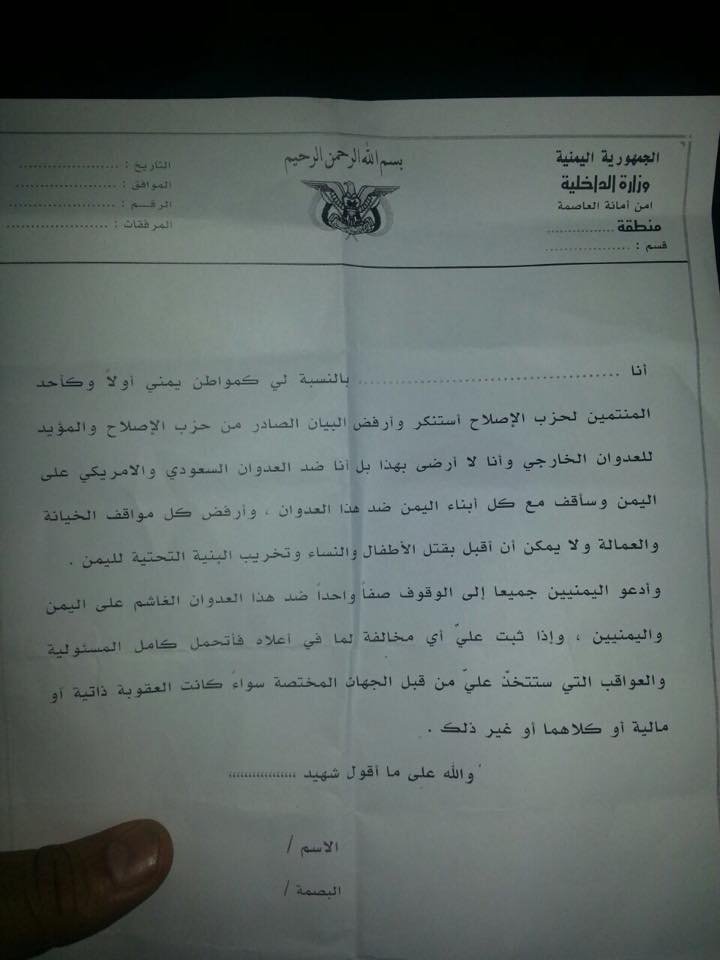 الجمهورية اليمنية
وزارة الداخلية
امن أمانة العاصمة
منطقة ................
قسم : ....................
بسم الله الرحمن الرحيم
التاريخ : ......................
الموافق : ......................
الرقـم : ......................
المرفقات : ......................
أنا .......................................... بالنسبة لي كمواطن يمني أولاً وكأحد
المنتمين لحزب الإصلاح أستنكر وأرفض البيان الصادر من حزب الإصلاح والمؤيد
للعدوان الخارجي وأنا لا أرضى بهذا بل أنا ضد العدوان السعودي والامريكي على
اليمن وسأقف مع كل أبناء اليمن ضد هذا العدوان ، وأرفض كل مواقف الخيانة
والعمالة ولا يمكن أن أقبل بقتل الأطفال والنساء وتخريب البنية التحتية لليمن .
وأدعو اليمنيين جميعا إلى الوقوف صفاً واحداً ضد هذا العدوان الغاشم على اليمن
واليمنيين ، وإذا ثبت عليّ أي مخالفة لما في أعلاه فأتحمل كامل المسئولية
والعواقب التي ستتخذّ عليّ من قبل الجهات المختصة سواءً كانت العقوبة ذاتية أو
مالية أو كلاهما أو غير ذلك .
والله على ما أقول شهيد ،،،،،،،،،،،،،،،،،
الاسم /
البصمة /